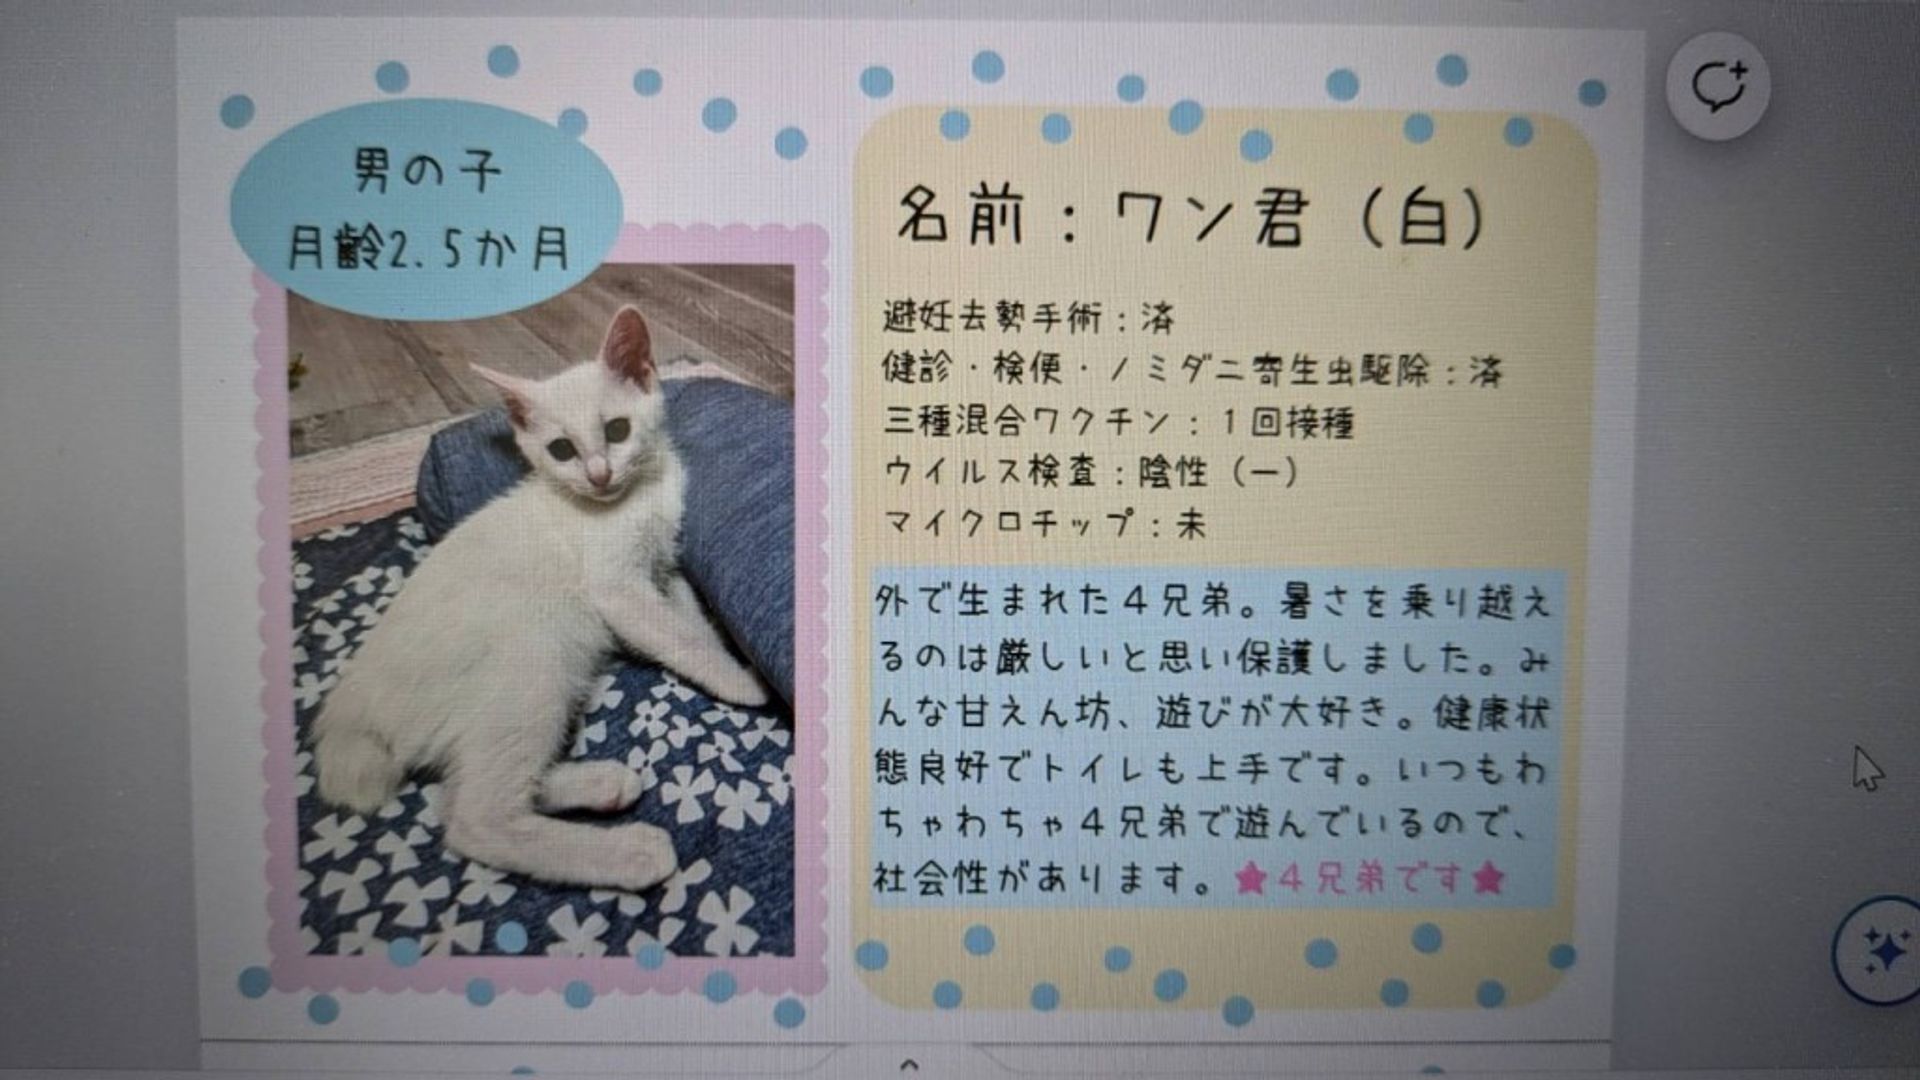 男の子
月齢2.5か月
名前：ワン君（白）
避妊去勢手術：済
健診・検便・ノミダニ寄生虫駆除：済
三種混合ワクチン：１回接種
ウイルス検査：陰性（ー）
マイクロチップ：未
外で生まれた４兄弟。暑さを乗り越え
るのは厳しいと思い保護しました。み
んな甘えん坊、遊びが大好き。健康状
態良好でトイレも上手です。いつもわ
ちゃわちゃ４兄弟で遊んでいるので、
社会性があります。★４兄弟です★